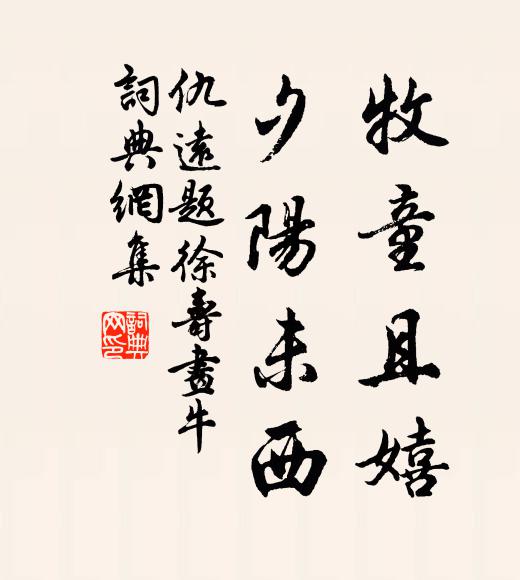 牧童且嬉
夕陽未西
仇遠題徐壽畫牛
詞典網集
詞典
网印